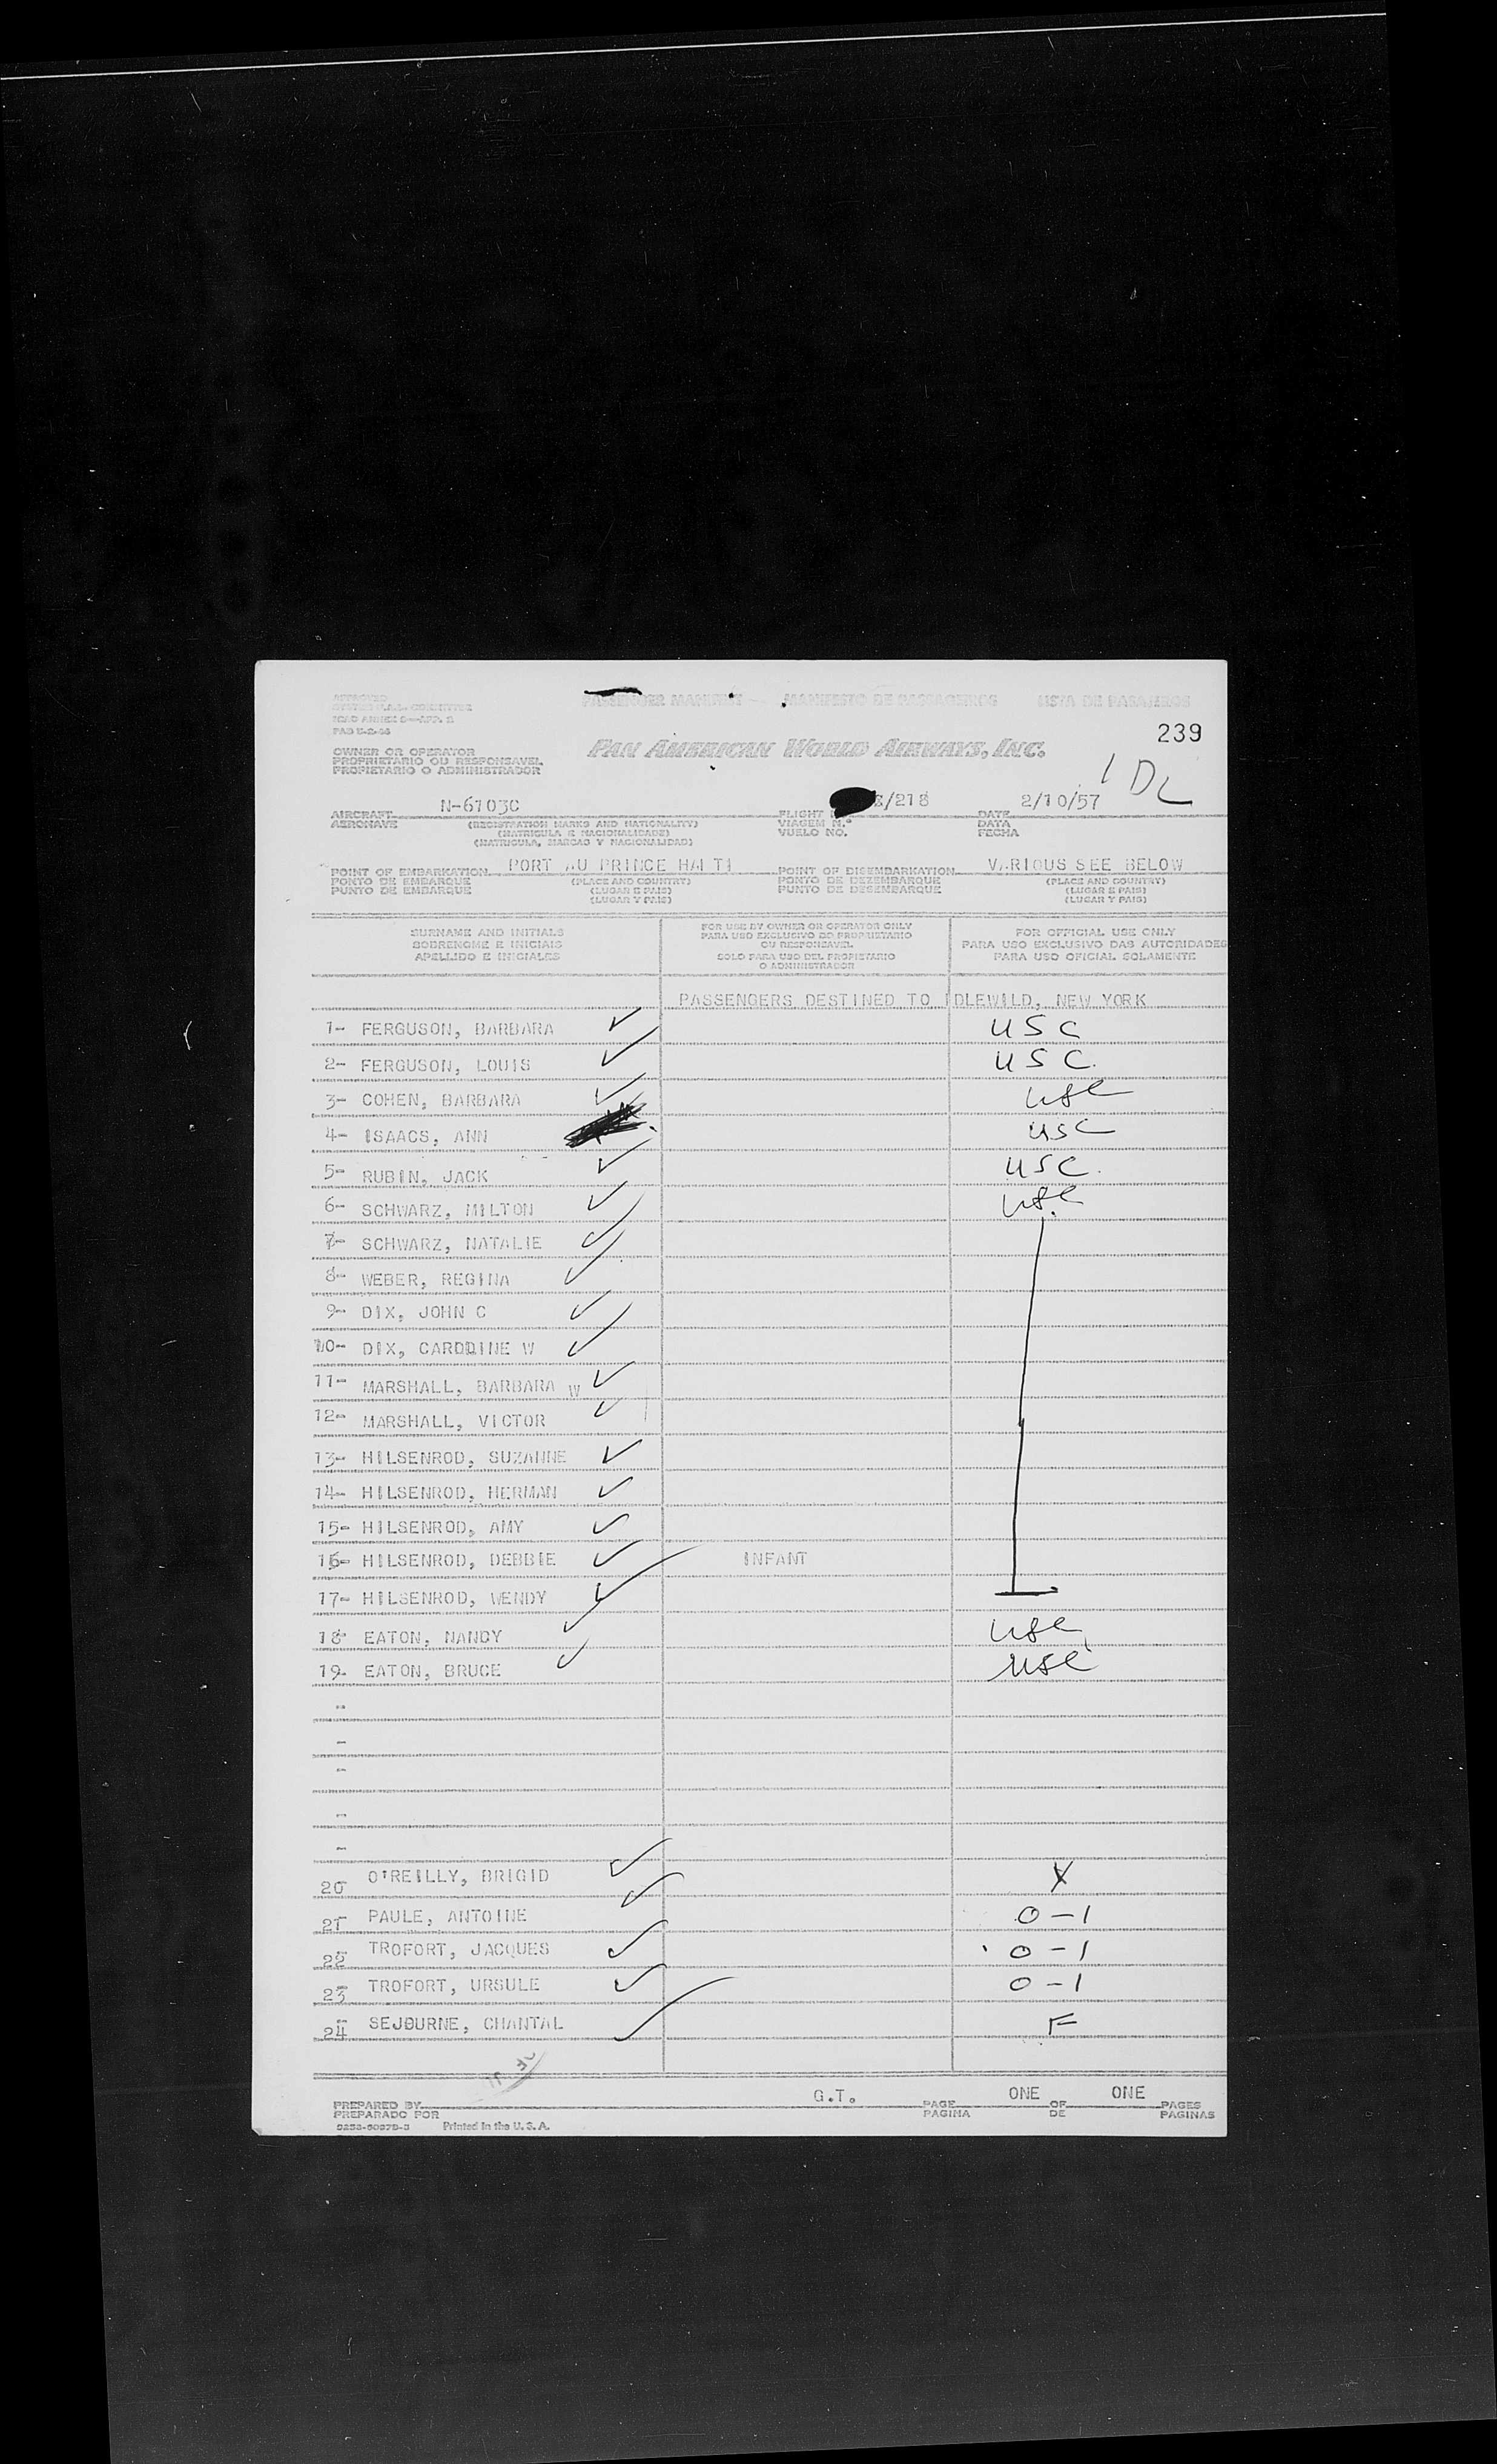 PASSENGER MANIFEST — MANIFESTO DE PASSAGEIROS LISTA DE PASAJEROS
239
OWNER OR OPERATOR
PROPRIETARIO OU RESPONSAVEL
PROPIETARIO O ADMINISTRADOR
PAN AMERICAN WORLD AIRWAYS, INC.
1 DL
AIRCRAFT N-6103C FLIGHT /218 DATE 2/10/57
AERONAVE (REGISTRATION MARKS AND NATIONALITY) VIAGEM N.º DATA
(MATRICULA E NACIONALIDADE) VUELO NO. FECHA
(MATRICULA, MARCAS Y NACIONALIDAD)
POINT OF EMBARKATION PORT AU PRINCE HAITI POINT OF DISEMBARKATION VARIOUS SEE BELOW
PONTO DE EMBARQUE (PLACE AND COUNTRY) PONTO DE DEZEMBARQUE (PLACE AND COUNTRY)
PUNTO DE EMBARQUE (LUGAR E PAIS) PUNTO DE DESEMBARQUE (LUGAR E PAIS)
(LUGAR Y PAIS) (LUGAR Y PAIS)
SURNAME AND INITIALS FOR USE BY OWNER OR OPERATOR ONLY FOR OFFICIAL USE ONLY
SOBRENOME E INICIAIS PARA USO EXCLUSIVO DO PROPRIETARIO PARA USO EXCLUSIVO DAS AUTORIDADES
APELLIDO E INICIALES OU RESPONSAVEL PARA USO OFICIAL SOLAMENTE
SOLO PARA USO DEL PROPIETARIO
O ADMINISTRADOR
PASSENGERS DESTINED TO IDLEWILD, NEW YORK
1- FERGUSON, BARBARA USC
2- FERGUSON, LOUIS USC.
3- COHEN, BARBARA usc
4- ISAACS, ANN usc
5- RUBIN, JACK usc.
6- SCHWARZ, MILTON usc
7- SCHWARZ, NATALIE
8- WEBER, REGINA
9- DIX, JOHN C
10- DIX, CARODINE W
11- MARSHALL, BARBARA W
12- MARSHALL, VICTOR
13- HILSENROD, SUZANNE
14- HILSENROD, HERMAN
15- HILSENROD, AMY
16- HILSENROD, DEBBIE INFANT
17- HILSENROD, WENDY
18- EATON, NANCY usc
19- EATON, BRUCE usc
20 O'REILLY, BRIGID X
21 PAULE, ANTOINE 0-1
22 TROFORT, JACQUES 0-1
23 TROFORT, URSULE 0-1
24 SEJOURNE, CHANTAL F
G.T. ONE ONE
PREPARED BY PAGE OF PAGES
PREPARADO POR PAGINA DE PAGINAS
Printed in the U. S. A.